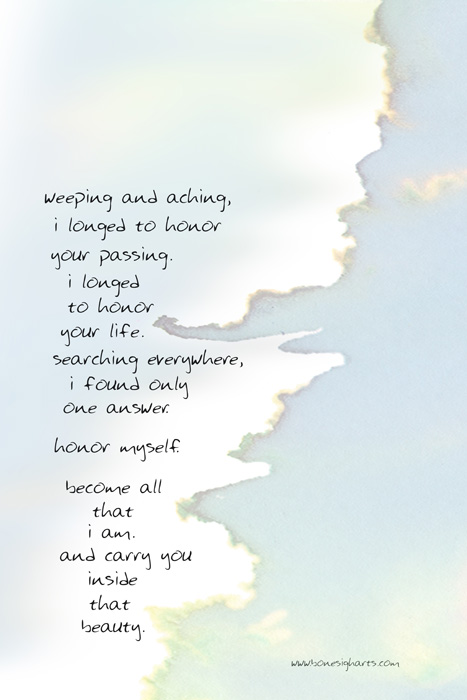 weeping and aching,
i longed to honor
your passing.
i longed
to honor
your life.
searching everywhere,
i found only
one answer.
honor myself.
become all
that
i am.
and carry you
inside
that
beauty.
www.bonesigharts.com